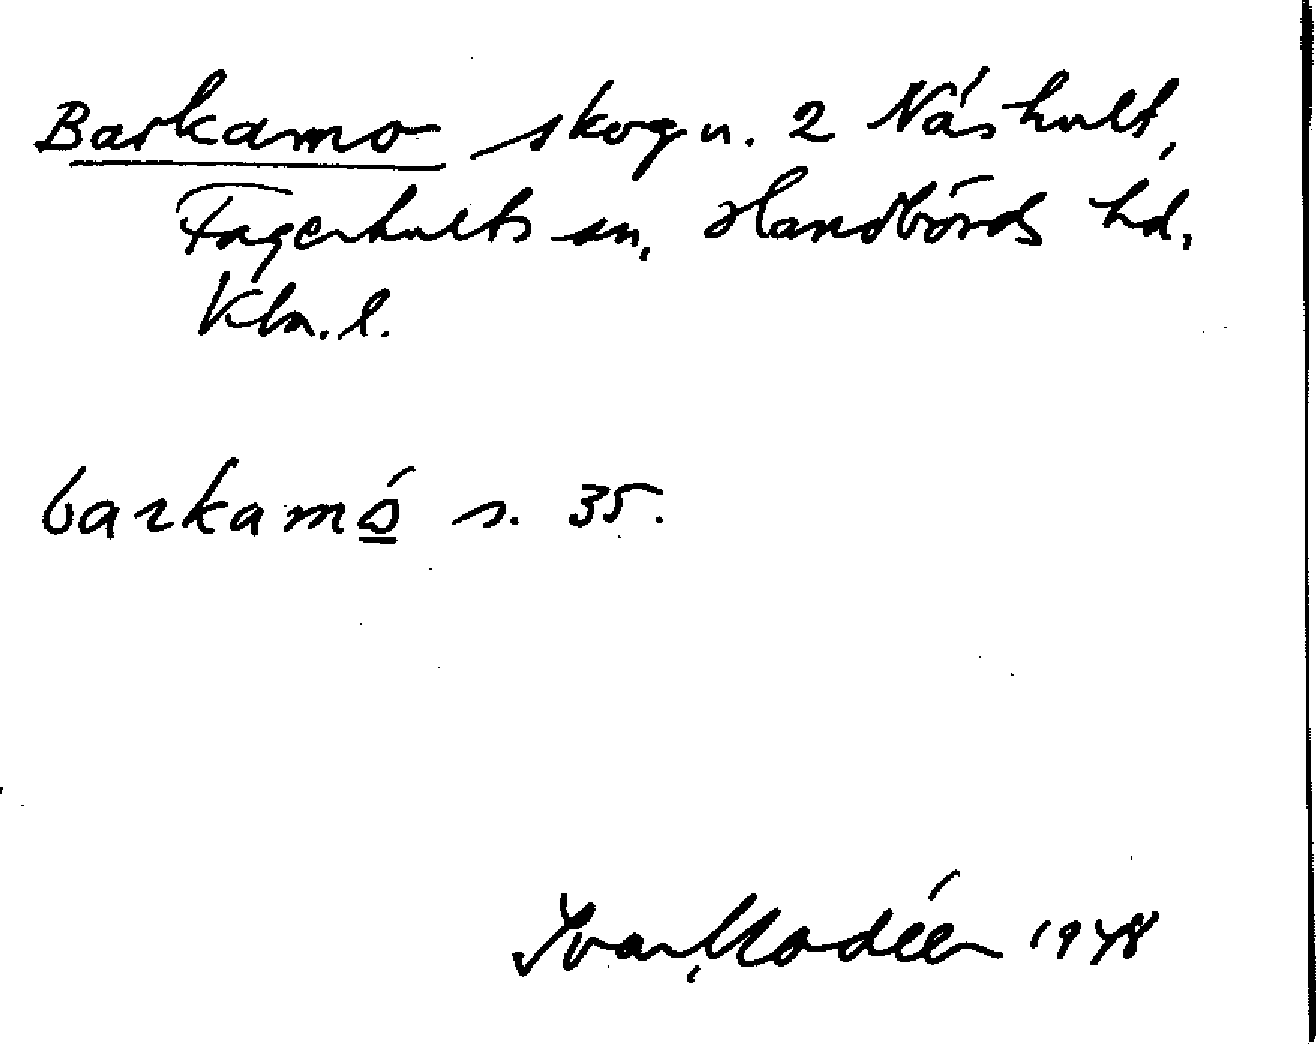 Barkamo skog n. 2 Näshult,
Fagerhults sn, Handbörds hd,
Klm. l.
barkamó s. 35.
Ivar Modéer 1948